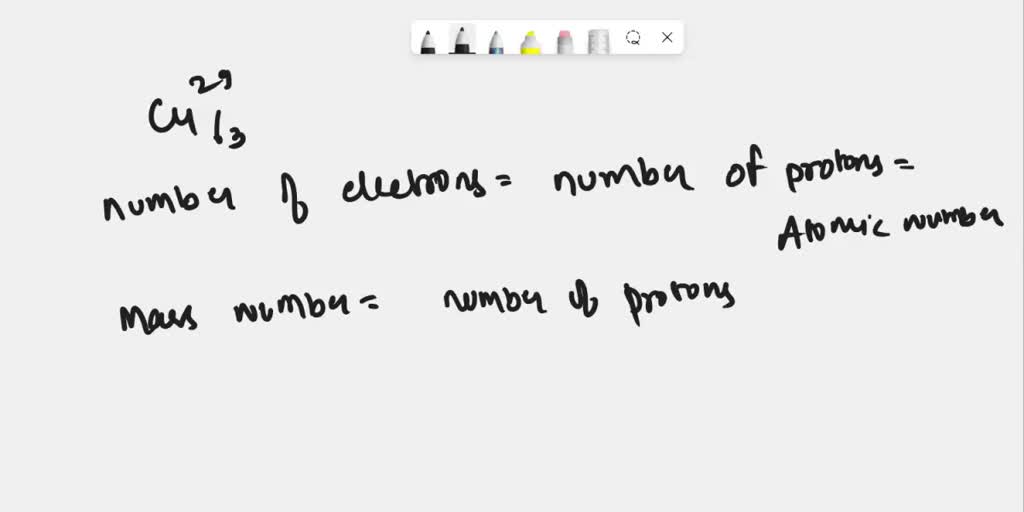 Cu 29
63
number of electrons = number of protons =
Atomic number
Mass number = number of protons